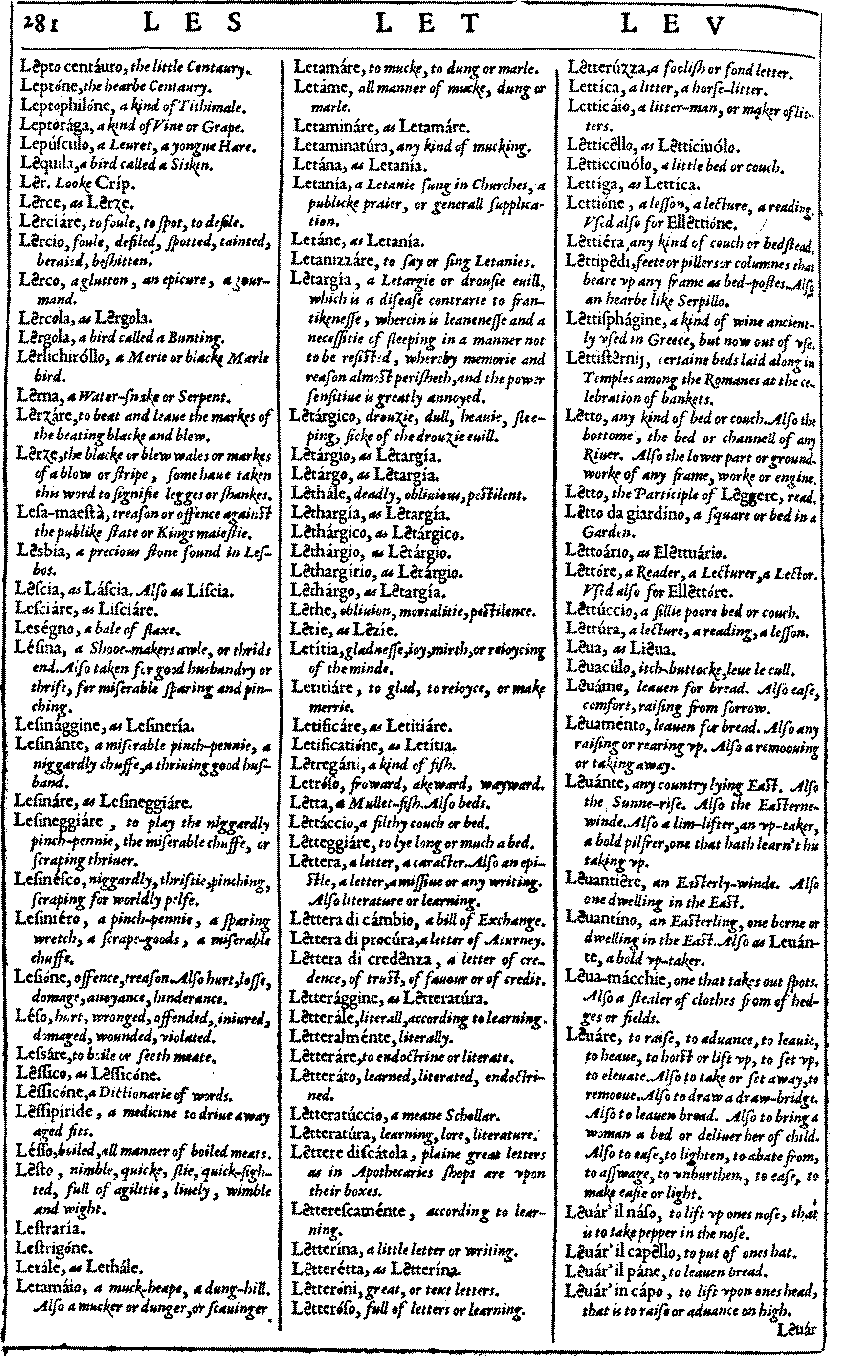 281 L E S L E T L E V
Lêpto centáuro, the little Centaury.
Leptóne, the hearbe Centaury.
Leptophilóne, a kind of Tithimale.
Leptorága, a kind of Vine or Grape.
Lepúsculo, a Leuret, a yongue Hare.
Lêqula, a bird called a Sisken.
Lêr. Looke Críp.
Lêrce, as Lêrze.
Lêrciáre, to foule, to spot, to defile.
Lêrcio, foule, defiled, spotted, tainted,
beraied, beshitten.
Lêrco, a glutton, an epicure, a gour-
mand.
Lêrcola, as Lêrgola.
Lêrgola, a bird called a Bunting.
Lêrlichiróllo, a Merle or blacke Marle
bird.
Lêrna, a Water-snake or Serpent.
Lêrzáre, to beat and leaue the markes of
the beating blacke and blew.
Lêrze, the blacke or blew wales or markes
of a blow or stripe, some haue taken
this word to signifie legges or shankes.
Lesa-maestà, treason or offence against
the publike state or Kings maiestie.
Lêsbia, a precious stone found in Les-
bos.
Lêscia, as Láscia. Also as Líscia.
Lesciáre, as Lisciáre.
Leségno, a bale of flaxe.
Lésina, a Shooe-makers awle, or thrids
end. Also taken for good husbandry or
thrift, for miserable sparing and pin-
ching.
Lesinággine, as Lesinería.
Lesinánte, a miserable pinch-pennie, a
niggardly chuffe, a thriuing good hus-
band.
Lesináre, as Lesineggiáre.
Lesineggiáre, to play the niggardly
pinch-pennie, the miserable chuffe, or
scraping thriuer.
Lesinésco, niggardly, thriftie, pinching,
scraping for worldly pelfe.
Lesiniéro, a pinch-pennie, a sparing
wretch, a scrape-goods, a miserable
chuffe.
Lesióne, offence, treason. Also hurt, losse,
domage, anoyance, hinderance.
Léso, hurt, wronged, offended, iniured,
damaged, wounded, violated.
Lessáre, to boile or seeth meate.
Lêssico, as Lêssicóne.
Lêssicóne, a Dictionarie of words.
Lêssipiride, a medicine to driue away
aged fits.
Lésso, boiled, all manner of boiled meats.
Lêsto, nimble, quicke, slie, quick-sigh-
ted, full of agilitie, liuely, wimble
and wight.
Lestraría.
Lestrigóne.
Letále, as Lethále.
Letamáio, a muck-heape, a dung-hill.
Also a mucker or dunger, or scauinger
Letamáre, to mucke, to dung or marle.
Letáme, all manner of mucke, dung or
marle.
Letamináre, as Letamáre.
Letaminatúra, any kind of mucking.
Letána, as Letanía.
Letanía, a Letanie sung in Churches, a
publicke praier, or generall supplica-
tion.
Letáne, as Letanía.
Letanizzáre, to say or sing Letanies.
Lêtargía, a Letargie or drousie euill,
which is a disease contrarie to fran-
tikenesse, wherein is leanenesse and a
necessitie of sleeping in a manner not
to be resisted, whereby memorie and
reason almost perisheth, and the power
sensitiue is greatly annoyed.
Lêtárgico, drouzie, dull, heauie, slee-
ping, sicke of the drouzie euill.
Lêtárgio, as Lêtargía.
Lêtárgo, as Lêtargía.
Lêthále, deadly, obliuious, pestilent.
Lêthargía, as Lêtargía.
Lêthárgico, as Lêtárgico.
Lêthárgio, as Lêtárgio.
Lêthargirio, as Lêtárgio.
Lêthárgo, as Lêtargía.
Lêthe, obliuion, mortalitie, pestilence.
Lêtie, as Lêzie.
Letítia, gladnesse, ioy, mirth, or reioycing
of the minde.
Letitiáre, to glad, to reioyce, or make
merrie.
Letificáre, as Letitiáre.
Letificatióne, as Letítia.
Lêtregáni, a kind of fish.
Letróso, froward, akeward, wayward.
Lêtta, a Mullet-fish. Also beds.
Lêttáccio, a filthy couch or bed.
Lêtteggiáre, to lye long or much a bed.
Lêttera, a letter, a caracter. Also an epi-
stle, a letter, a missiue or any writing.
Also literature or learning.
Lêttera di cámbio, a bill of Exchange.
Lêttera di procúra, a letter of Aturney.
Lêttera di credênza, a letter of cre-
dence, of trust, of fauour or of credit.
Lêtterággine, as Lêtteratúra.
Lêtterále, literall, according to learning.
Lêtteralménte, literally.
Lêtteráre, to endoctrine or literate.
Lêtteráto, learned, literated, endoctri-
ned.
Lêtteratúccio, a meane Schollar.
Lêtteratúra, learning, lore, literature.
Lêttere discátola, plaine great letters
as in Apothecaries shops are vpon
their boxes.
Lêtterescaménte, according to lear-
ning.
Lêtterína, a little letter or writing.
Lêtterétta, as Lêtterína.
Lêtteróni, great, or text letters.
Lêtteróso, full of letters or learning.
Lêtterúzza, a foolish or fond letter.
Lettíca, a litter, a horse-litter.
Letticáio, a litter-man, or maker of lit-
ters.
Lêtticêllo, as Lêtticiuólo.
Lêtticciuólo, a little bed or couch.
Lettíga, as Lettíca.
Lettióne, a lesson, a lecture, a reading.
Vsed also for Ellêttióne.
Lêttiéra, any kind of couch or bedstead.
Lêttipêdi, feete or pillers or columnes that
beare vp any frame as bed-postes. Also
an hearbe like Serpillo.
Lêttisphágine, a kind of wine ancient-
ly vsed in Greece, but now out of vse.
Lêttistêrnij, certaine beds laid along in
Temples among the Romanes at the ce-
lebration of bankets.
Lêtto, any kind of bed or couch. Also the
bottome, the bed or channell of any
Riuer. Also the lower part or ground-
worke of any frame, worke or engine.
Lêtto, the Participle of Lêggere, read.
Lêtto da giardíno, a square or bed in a
Garden.
Lêttoário, as Elêttuário.
Lêttóre, a Reader, a Lecturer, a Lector.
Vsed also for Ellêttóre.
Lêttúccio, a sillie poore bed or couch.
Lêttúra, a lecture, a reading, a lesson.
Lêua, as Liêua.
Lêuacúlo, itch-buttocke, leue le cull.
Lêuáme, leauen for bread. Also ease,
comfort, raising from sorrow.
Lêuaménto, leauen for bread. Also any
raising or rearing vp. Also a remoouing
or taking away.
Lêuánte, any country lying East. Also
the Sunne-rise. Also the Easterne-
winde. Also a lim-lifter, an vp-taker,
a bold pilfrer, one that hath learn't his
taking vp.
Lêuantiêre, an Easterly-winde. Also
one dwelling in the East.
Lêuantíno, an Easterling, one borne or
dwelling in the East. Also as Leuán-
te, a bold vp-taker.
Lêua-mácchie, one that takes out spots.
Also a stealer of clothes from of hed-
ges or fields.
Lêuáre, to raise, to aduance, to leauie,
to heaue, to hoist or lift vp, to set vp,
to eleuate. Also to take or set away, to
remooue. Also to draw a draw-bridge.
Also to leauen bread. Also to bring a
woman a bed or deliuer her of child.
Also to ease, to lighten, to abate from,
to asswage, to vnburthen, to ease, to
make easie or light.
Lêuár' il náso, to lift vp ones nose, that
is to take pepper in the nose.
Lêuár' il capêllo, to put of ones hat.
Lêuár' il páne, to leauen bread.
Lêuár' in cápo, to lift vpon ones head,
that is to raise or aduance on high.
Lêuár